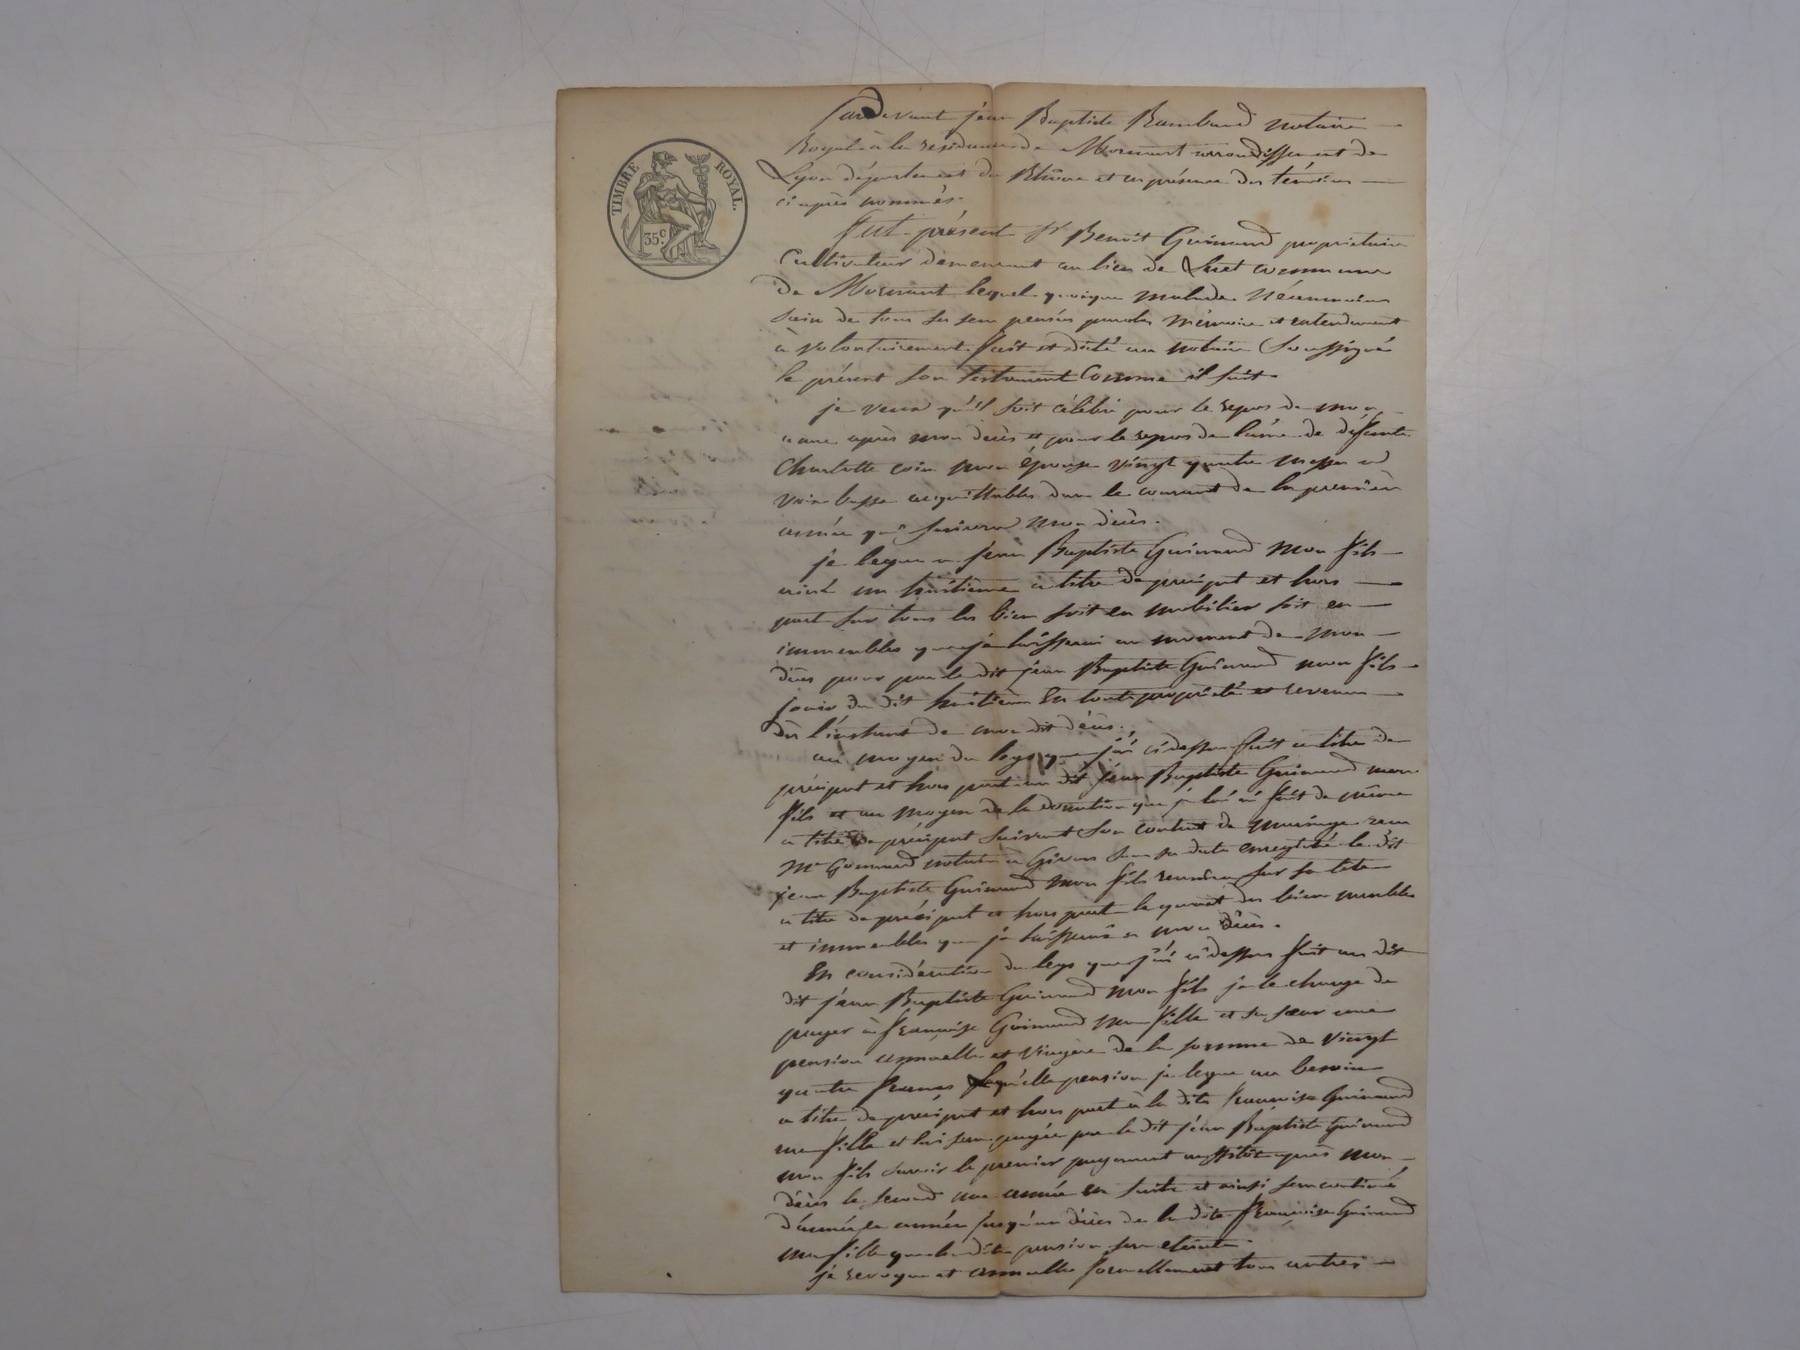 TIMBRE ROYAL.
35 c.
Pardevant jean Baptiste Rambaud notaire
Royal à la residence de Mornant arrondissement de
Lyon département du Rhône et en présence des témoins
ci après nommés.
fut présent sr Benoit Guinand propriétaire
Cultivateur demeurant au lieu de commune
de Mornant lequel quoique malade néanmoins
sain de tous ses sens pensées paroles mémoire et entendement
a volontairement fait et dicté au notaire soussigné
le présent son testament comme il suit.
je veux qu'il soit célébré pour le repos de mon
ame après mon décès et pour le repos de l'âme de défunte
Charlotte mon épouse vingt quatre messes a
voix basse acquittables dans le courant de la première
année qui suivera mon décès.
je legue a jean Baptiste Guinand mon fils
ainé un huitieme a titre de preciput et hors
part sur tous les biens soit en mobilier soit en
immeubles que je laisserai au moment de mon
décès pour par le dit jean Baptiste Guinand mon fils
jouir du dit huitieme En toute propriété et revenus
dès l'instant de mon dit décès.
au moyen du legs que j'ai ci dessus fait a titre de
préciput et hors part au dit jean Baptiste Guinand mon
fils et au moyen de la donation que je lui ai fait de même
a titre de préciput suivant son contrat de mariage reçu
Me notaire a Givors sous sa date enregistré le dit
jean Baptiste Guinand mon fils reunira sur sa tete
a titre de préciput et hors part le quart des biens meubles
et immeubles que je laisserai a mon décès.
En considération du legs que j'ai ci dessus fait au dit
dit jean Baptiste Guinand mon fils je le charge de
payer à françoise Guinand ma fille et sa sœur une
pension annuelle et viagère de la somme de vingt
quatre francs laquelle pension je legue au besoin
a titre de preciput et hors part à la dite françoise Guinand
ma fille et lui sera payée par le dit jean Baptiste Guinand
mon fils savoir le premier payement aussitôt après mon
décès le second une année en suite et ainsi sera continué
d'année en année jusqu'au décès de la dite françoise Guinand
ma fille que la dite pension sera eteinte.
je revoque et annulle formellement tous autres